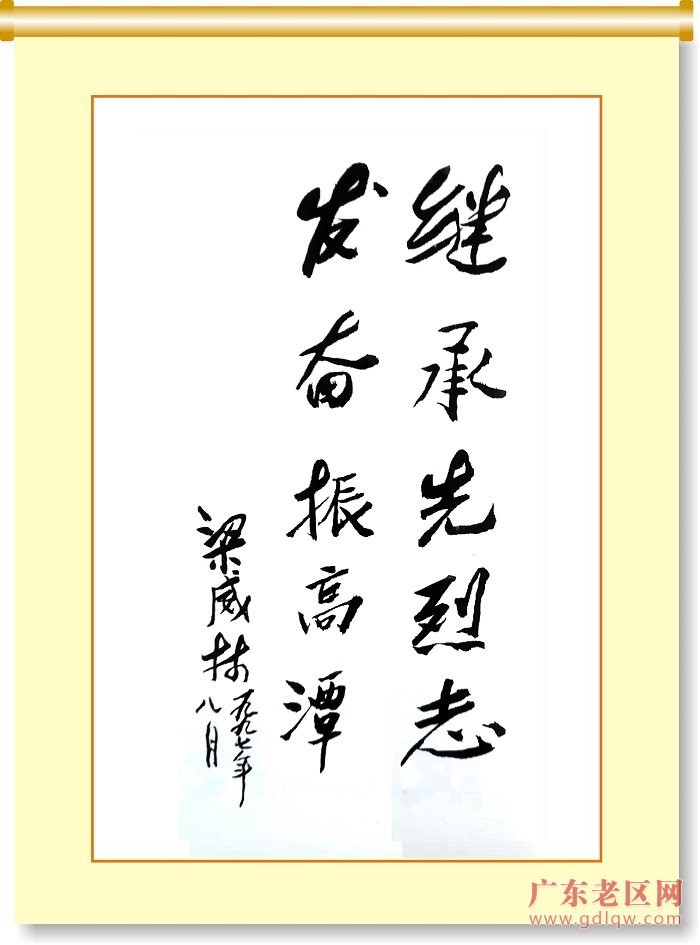 继承先烈志
发奋振高潭
梁威林
一九九七年
八月
广东老区网
www.gdlqw.com